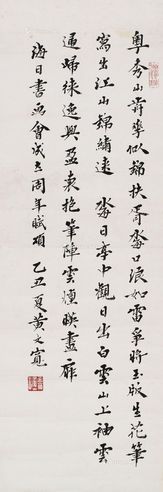 粤秀山前草似錦扶胥海口浪如雷爭將玉版生花筆
寫出江山錦繡連海日亭中觀日出白雲山上袖雲
通婦徠逸興盈衷抱筆陣雲煙映畫
海日書畫會成立周年賦頌 乙丑夏黄文寬